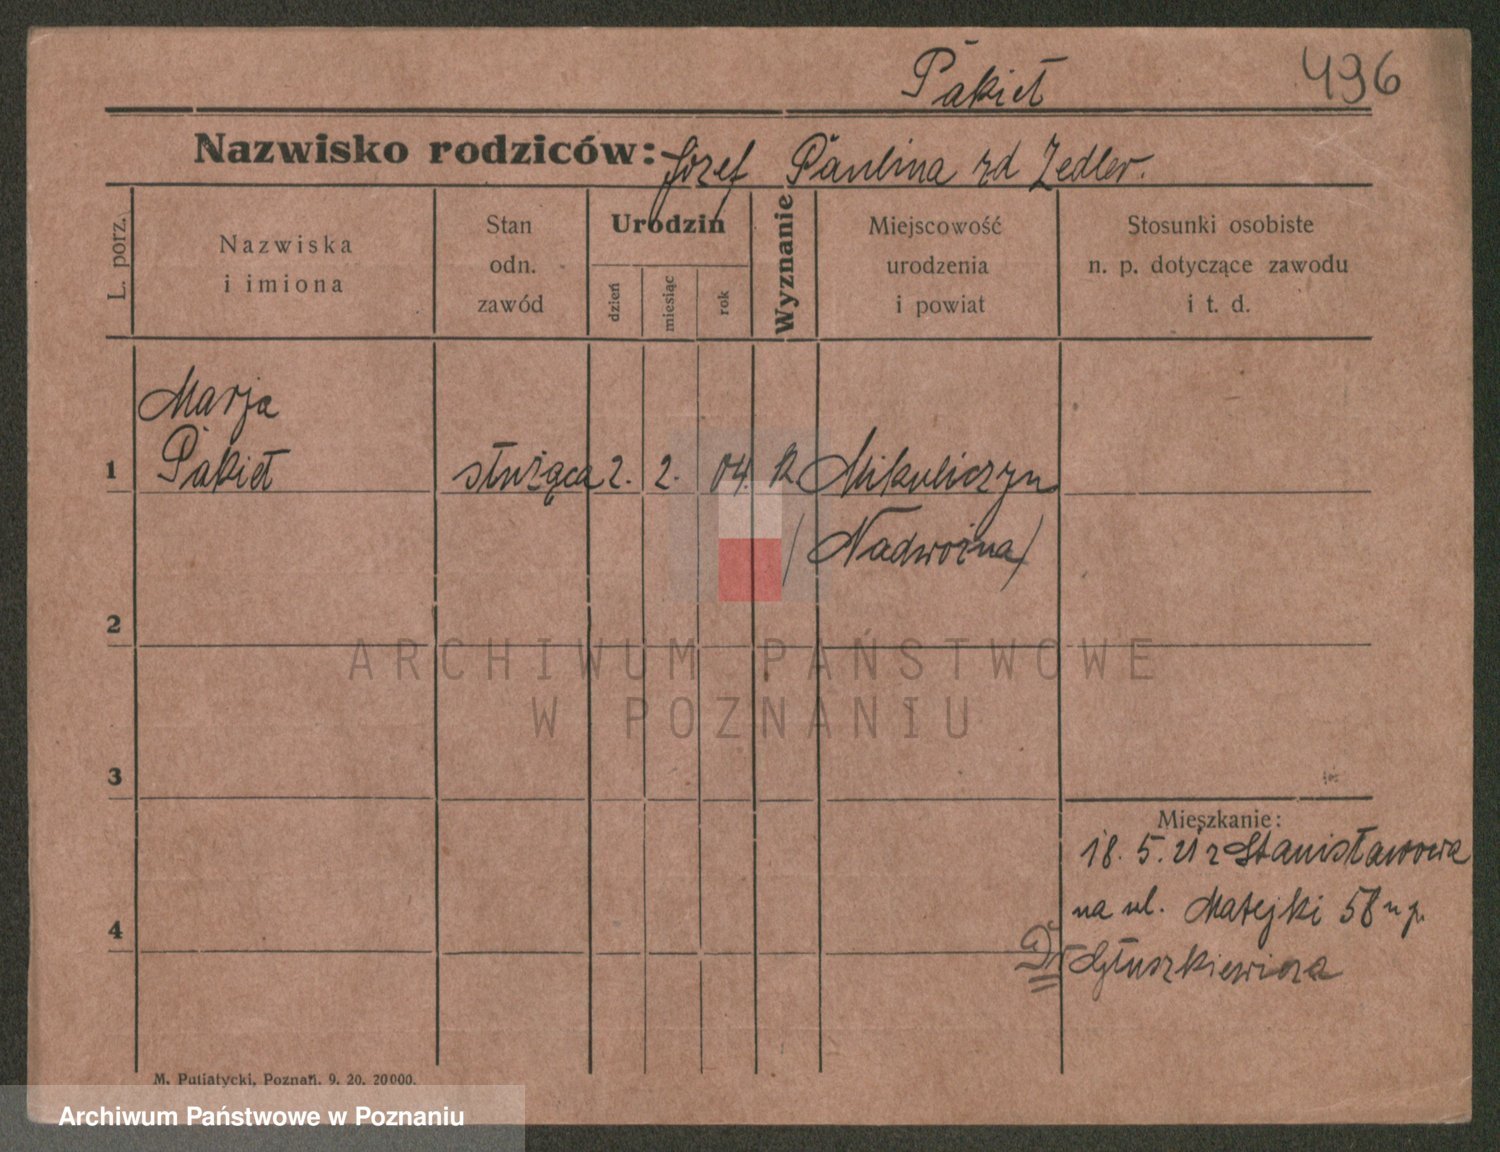 Pakieł
496
Nazwisko rodziców: Józef Paulina zd Zedler.
L. porz.
Nazwiska
i imiona
Stan
odn.
zawód
Urodzin
dzień
miesiąc
rok
Wyznanie
Miejscowość
urodzenia
i powiat
Stosunki osobiste
n. p. dotyczące zawodu
i t. d.
Marja
1 Pakieł służąca 2. 2. 04. k Mikuliczyn
(Nadwórna)
2
3
4
Mieszkanie:
18. 5. 21 z Stanisławowa
na ul. Matejki 58 u p.
Dr Głuszkiewicza
M. Putiatycki, Poznań. 9. 20. 20000.
ARCHIWUM PAŃSTWOWE
W POZNANIU
Archiwum Państwowe w Poznaniu